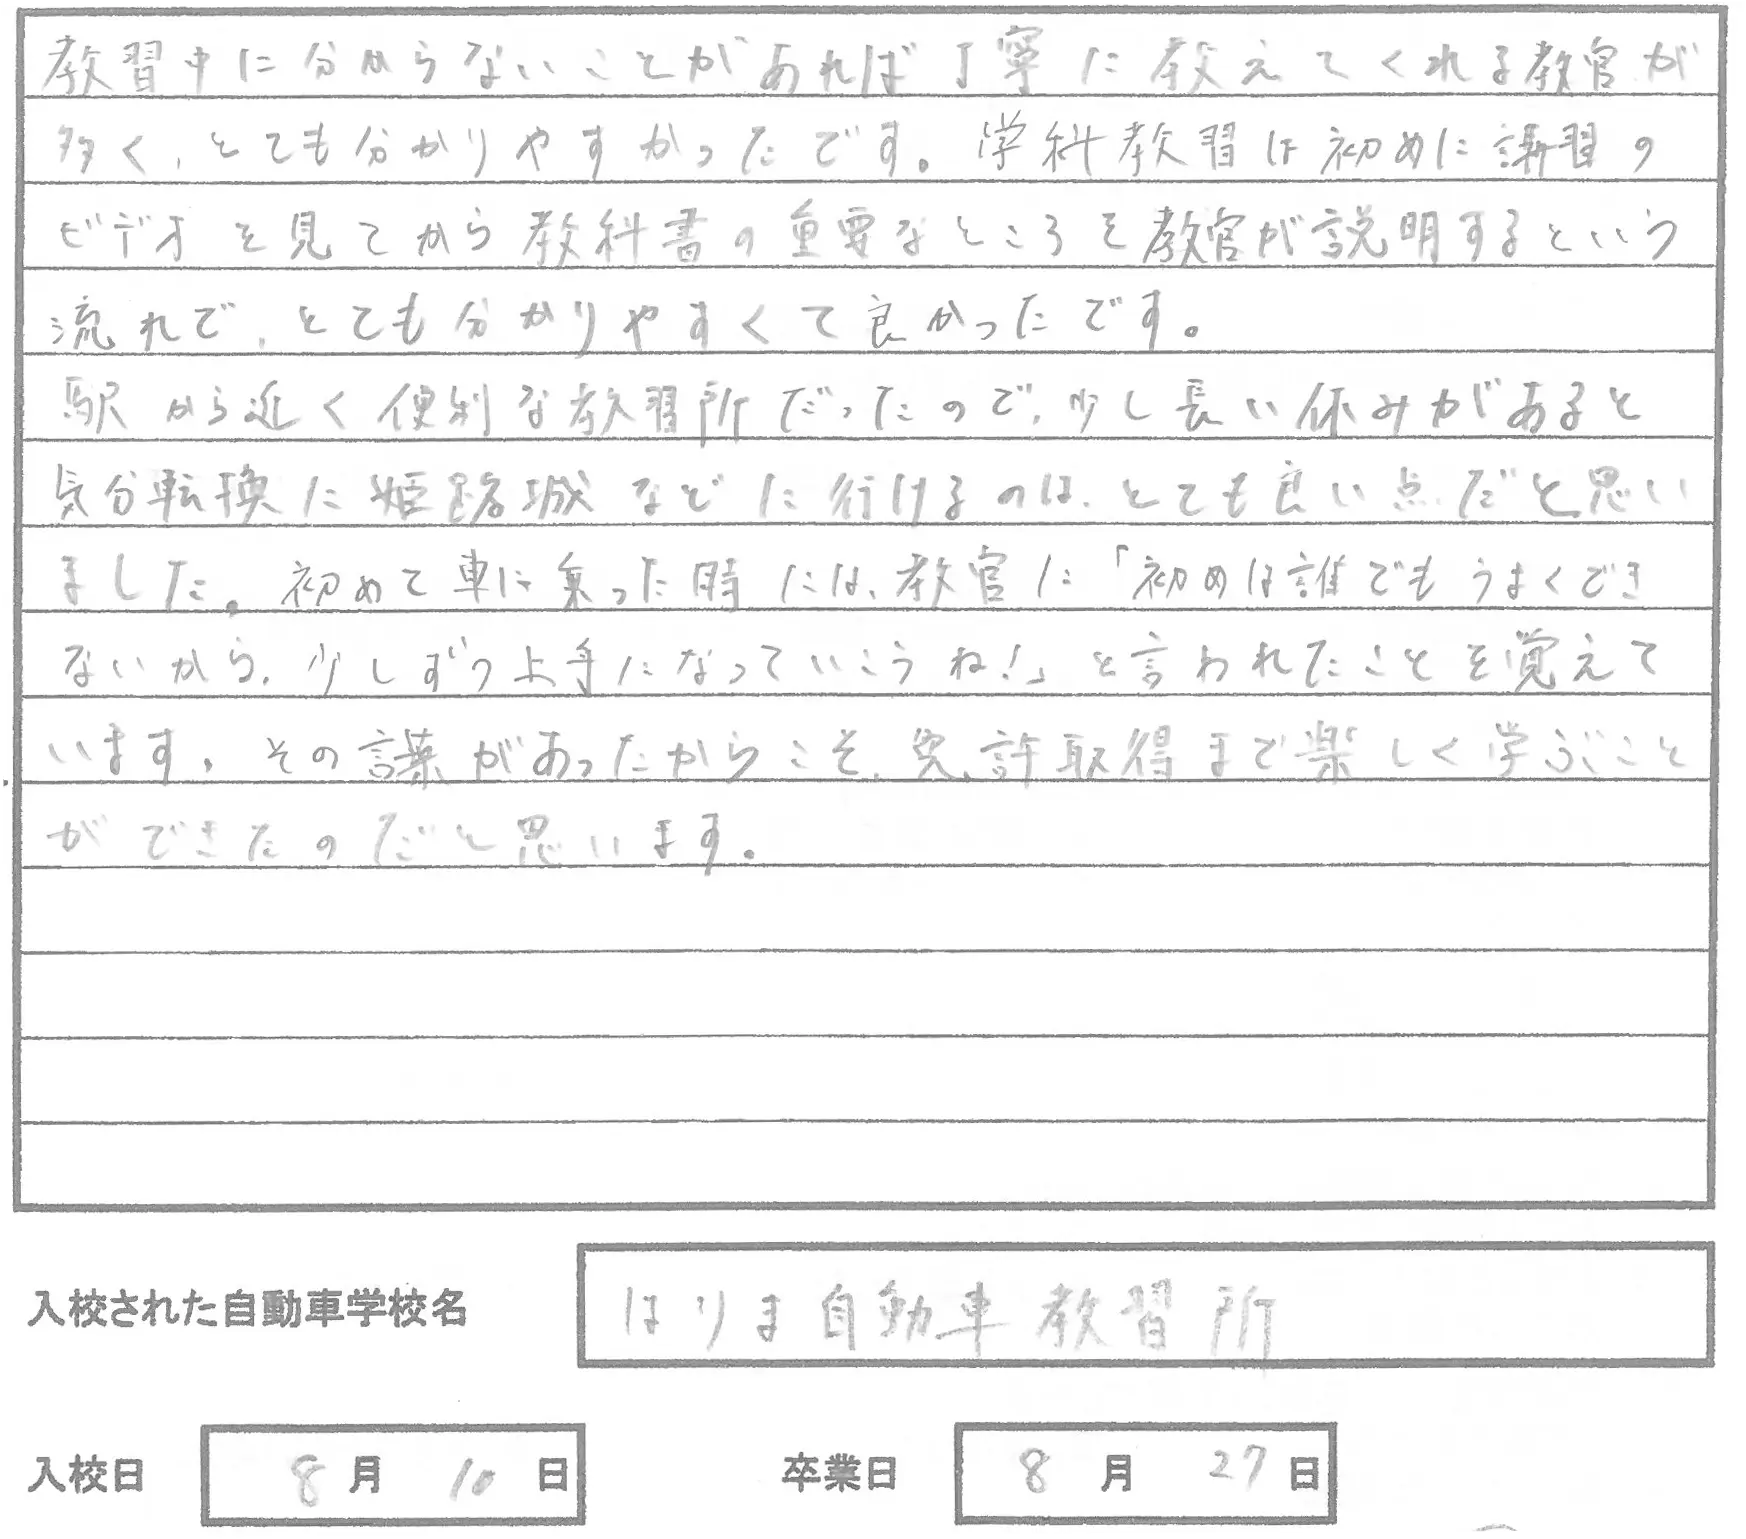 教習中に分からないことがあれば丁寧に教えてくれる教官が
多く、とても分かりやすかったです。学科教習は初めに講習の
ビデオを見てから教科書の重要なところを教官が説明するという
流れで、とても分かりやすくて良かったです。
駅から近く便利な教習所だったので、少し長い休みがあると
気分転換に姫路城などに行けるのは、とても良い点だと思い
ました。初めて車に乗った時には、教官に「初めは誰でもうまくでき
ないから、少しずつ上手になっていこうね!」と言われたことを覚えて
います。その言葉があったからこそ、免許取得まで楽しく学ぶこと
ができたのだと思います。
入校された自動車学校名 はりま自動車教習所
入校日 8月10日 卒業日 8月27日